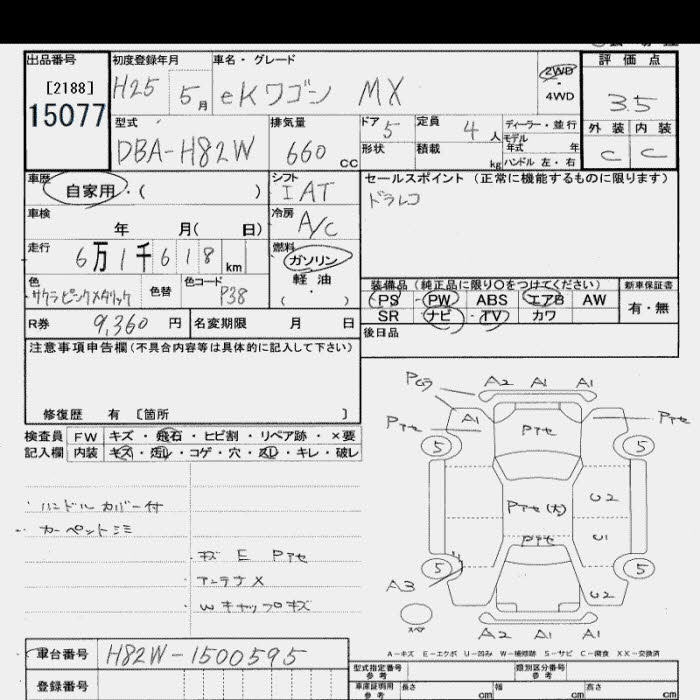 出品番号 初度登録年月 車名・グレード 評価点
[2188] H25 5月 eKワゴン MX 2WD・4WD 3.5
15077
型式 排気量 ドア 5 定員 4人 ディーラー・並行 外装 内装
DBA-H82W 660cc 形状 積載 kg モデル年式 年 C C
ハンドル 左・右
車歴 自家用・( ) シフト IAT セールスポイント (正常に機能するものに限ります)
車検 年 月( 日) 冷房 A/C ドラレコ
走行 6万1千618km 燃料 ガソリン
軽油
( ・ )
色 サクラピンクメタリック 色替 色コード P38
装備品 (純正品に限り○をつけてください) 新車保証書
PS PW ABS エアB AW 有・無
SR ナビ TV カワ
R券 9,360円 名変期限 月 日 後日品
注意事項申告欄(不具合内容等は具体的に記入して下さい)
修復歴 有 [箇所 ]
検査員 FW キズ・飛石・ヒビ割・リペア跡・×要
記入欄 内装 キズ・汚レ・コゲ・穴・スレ・キレ・破レ
・ハンドルカバー付
・カーペットシミ
・キズ E Pアセ
・アンテナX
・WキャップDキズ
A2 A1 A1
A1
Pアセ Pアセ Pアセ
5 5
Pアセ(大) U2
Pアセ U1
5 5
A3 U2
スペア
A2 A1 A1
A-キズ E-エクボ U-凹み W-補修跡 S-サビ C-腐食 XX-交換済
車台番号 H82W-1500595
登録番号
型式指定番号 参考 類別区分番号 参考
車庫証明用 参考 長さ cm 幅 cm 高さ cm